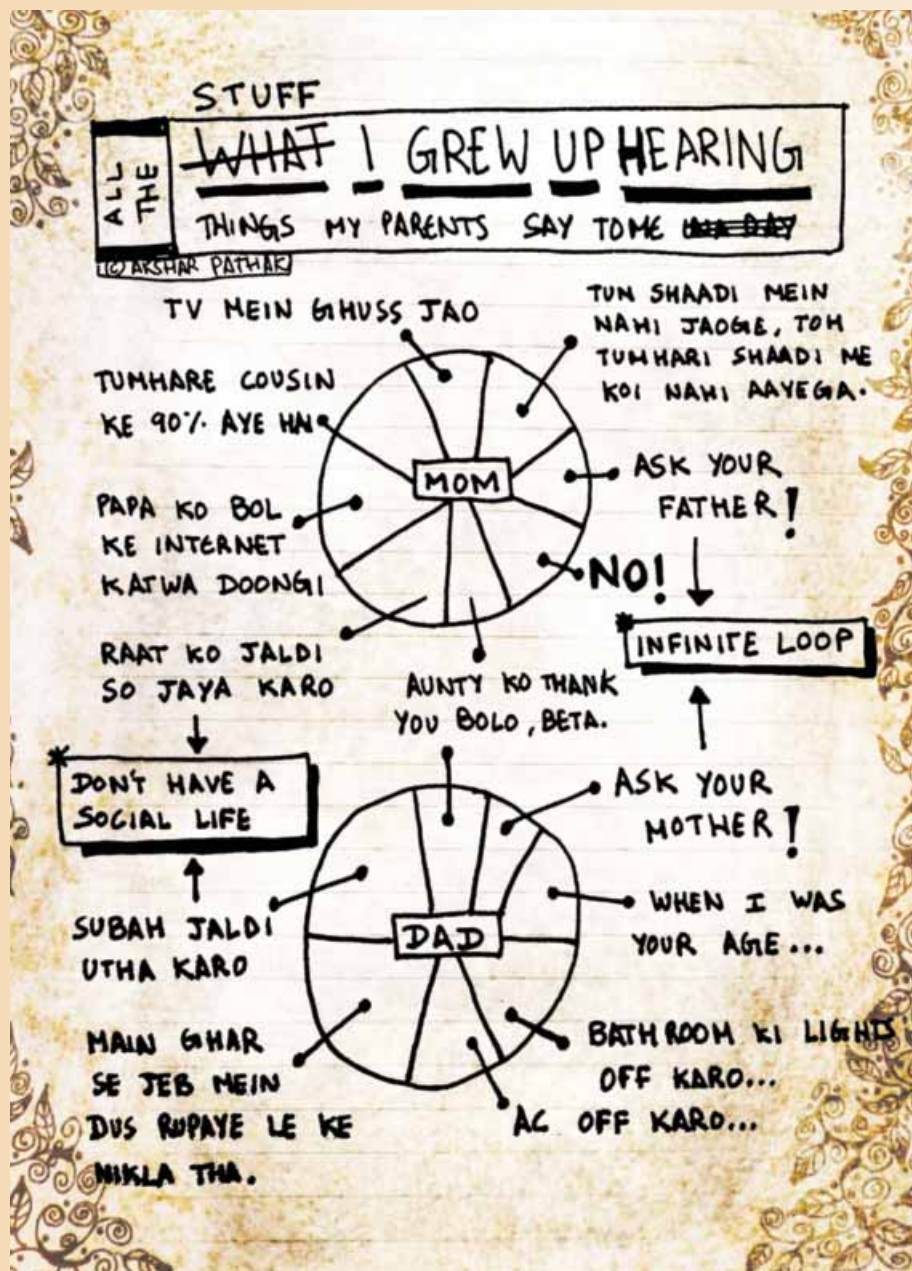 STUFF
ALL THE
WHAT I GREW UP HEARING
THINGS MY PARENTS SAY TO ME IN A DAY
(C) AKSHAR PATHAK
TV MEIN GHUSS JAO
TUM SHAADI MEIN
NAHI JAOGE, TOH
TUMHARI SHAADI ME
KOI NAHI AAYEGA.
TUMHARE COUSIN
KE 90% AYE HAI
MOM
ASK YOUR
FATHER!
PAPA KO BOL
KE INTERNET
KATWA DOONGI
NO!
*INFINITE LOOP
RAAT KO JALDI
SO JAYA KARO
AUNTY KO THANK
YOU BOLO, BETA.
*DON'T HAVE A
SOCIAL LIFE
ASK YOUR
MOTHER!
SUBAH JALDI
UTHA KARO
DAD
WHEN I WAS
YOUR AGE...
MAIN GHAR
SE JEB MEIN
DUS RUPAYE LE KE
NIKLA THA.
BATHROOM KI LIGHTS
OFF KARO...
AC OFF KARO...